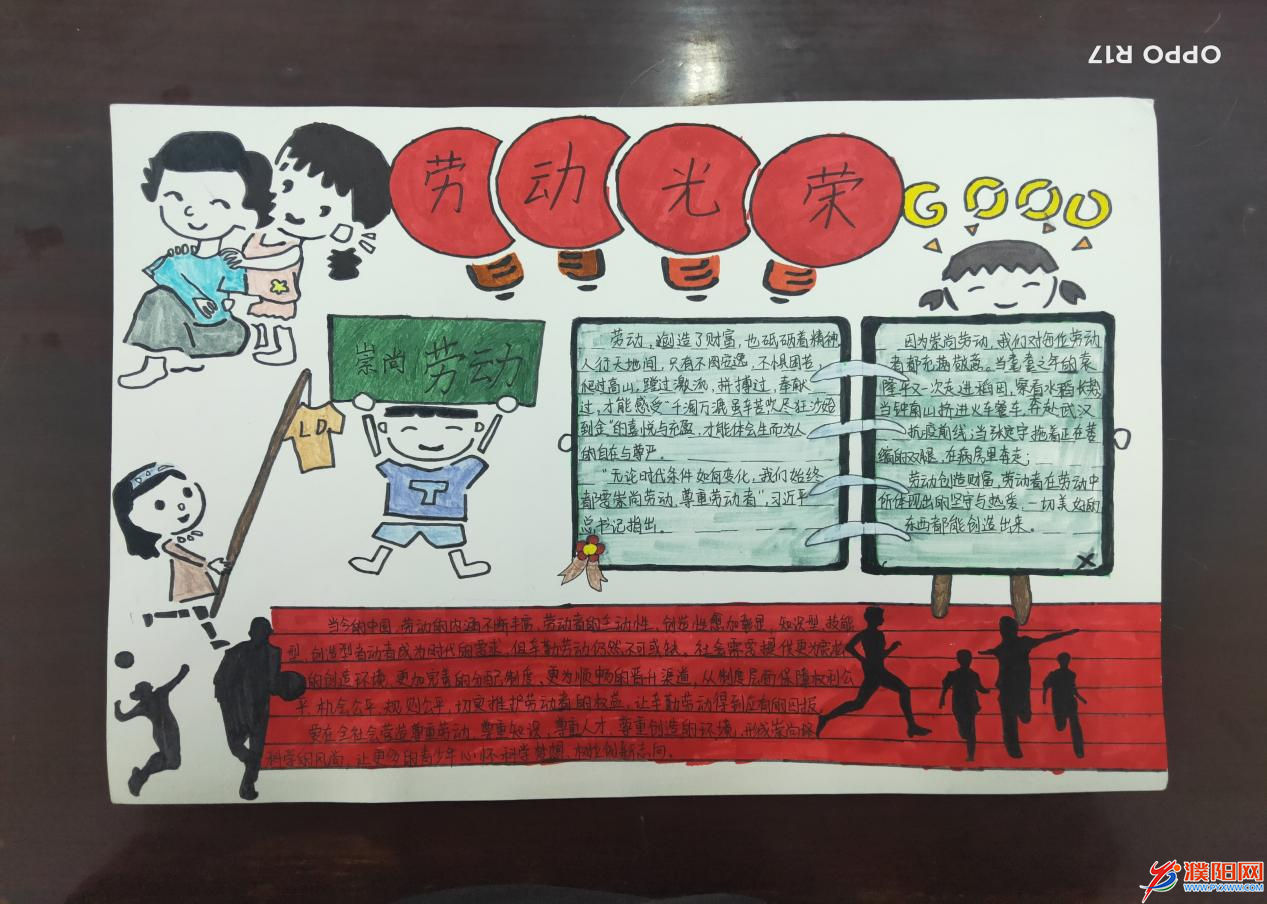 OPPO R17
劳动光荣
GOOD
崇尚 劳动
LD
T
劳动，创造了财富，也砥砺着精神
人行天地间，只有不图安逸，不惧困苦，
爬过高山，蹚过激流，拼搏过，奉献
过，才能感受“千淘万漉虽辛苦吹尽狂沙始
到金”的喜悦与充盈，才能体会生而为人
的自在与尊严。
“无论时代条件如何变化，我们始终
都要崇尚劳动，尊重劳动者”，习近平
总书记指出。
因为崇尚劳动，我们对每位劳动
者都充满敬意。当耄耋之年的袁
隆平又一次走进稻田，察看水稻长势
当钟南山挤进火车餐车，奔赴武汉
抗疫前线；当张定宇拖着正在萎
缩的双腿，在病房里奔走；
劳动创造财富，劳动者在劳动中
所体现出的坚守与热爱，一切美好的
东西都能创造出来。
当今的中国，劳动的内涵不断丰富，劳动者的主动性，创造性愈加彰显，知识型，技能
型，创造型劳动者成为时代的需求，但辛勤劳动仍然不可或缺。社会需要提供更为宽松
的创造环境，更加完善的分配制度，更为顺畅的晋升渠道，从制度层面保障权利公
平，机会公平，规则公平，切实维护劳动者的权益，让辛勤劳动得到应有的回报。
要在全社会营造尊重劳动，尊重知识，尊重人才，尊重创造的环境，形成崇尚
科学的风尚，让更多的青少年心怀科学梦想，树立创新志向。
濮阳网
WWW.PYXWW.COM